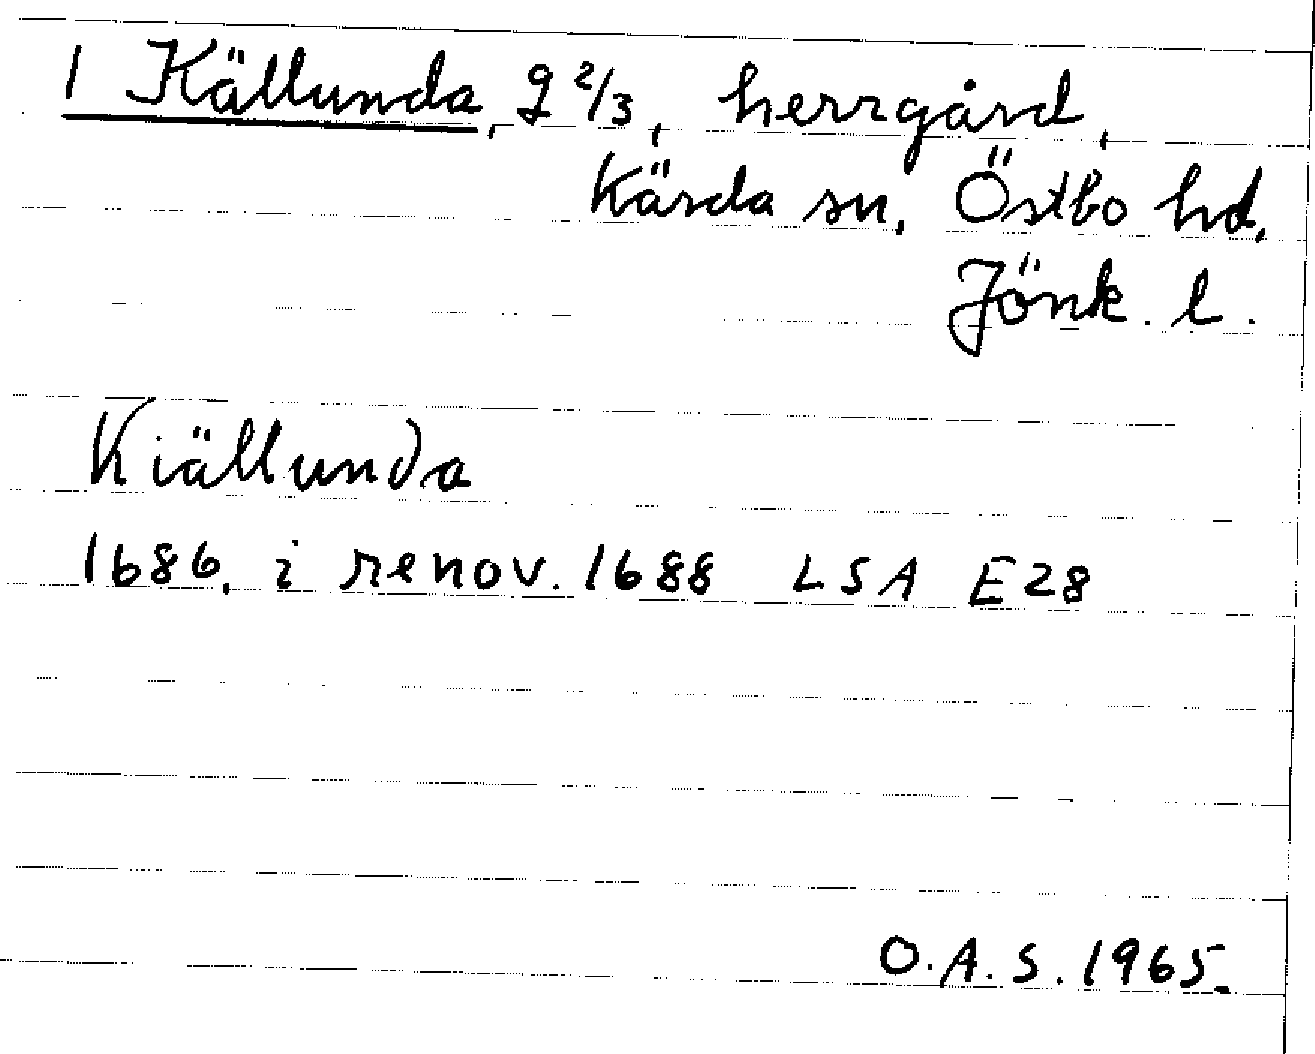 1 Källunda, 2 2/3, herrgård,
Kärda sn. Östbo hd.
Jönk. l.
Kiällunda
1686, i renov. 1688 LSA E28
O.A.S. 1965.